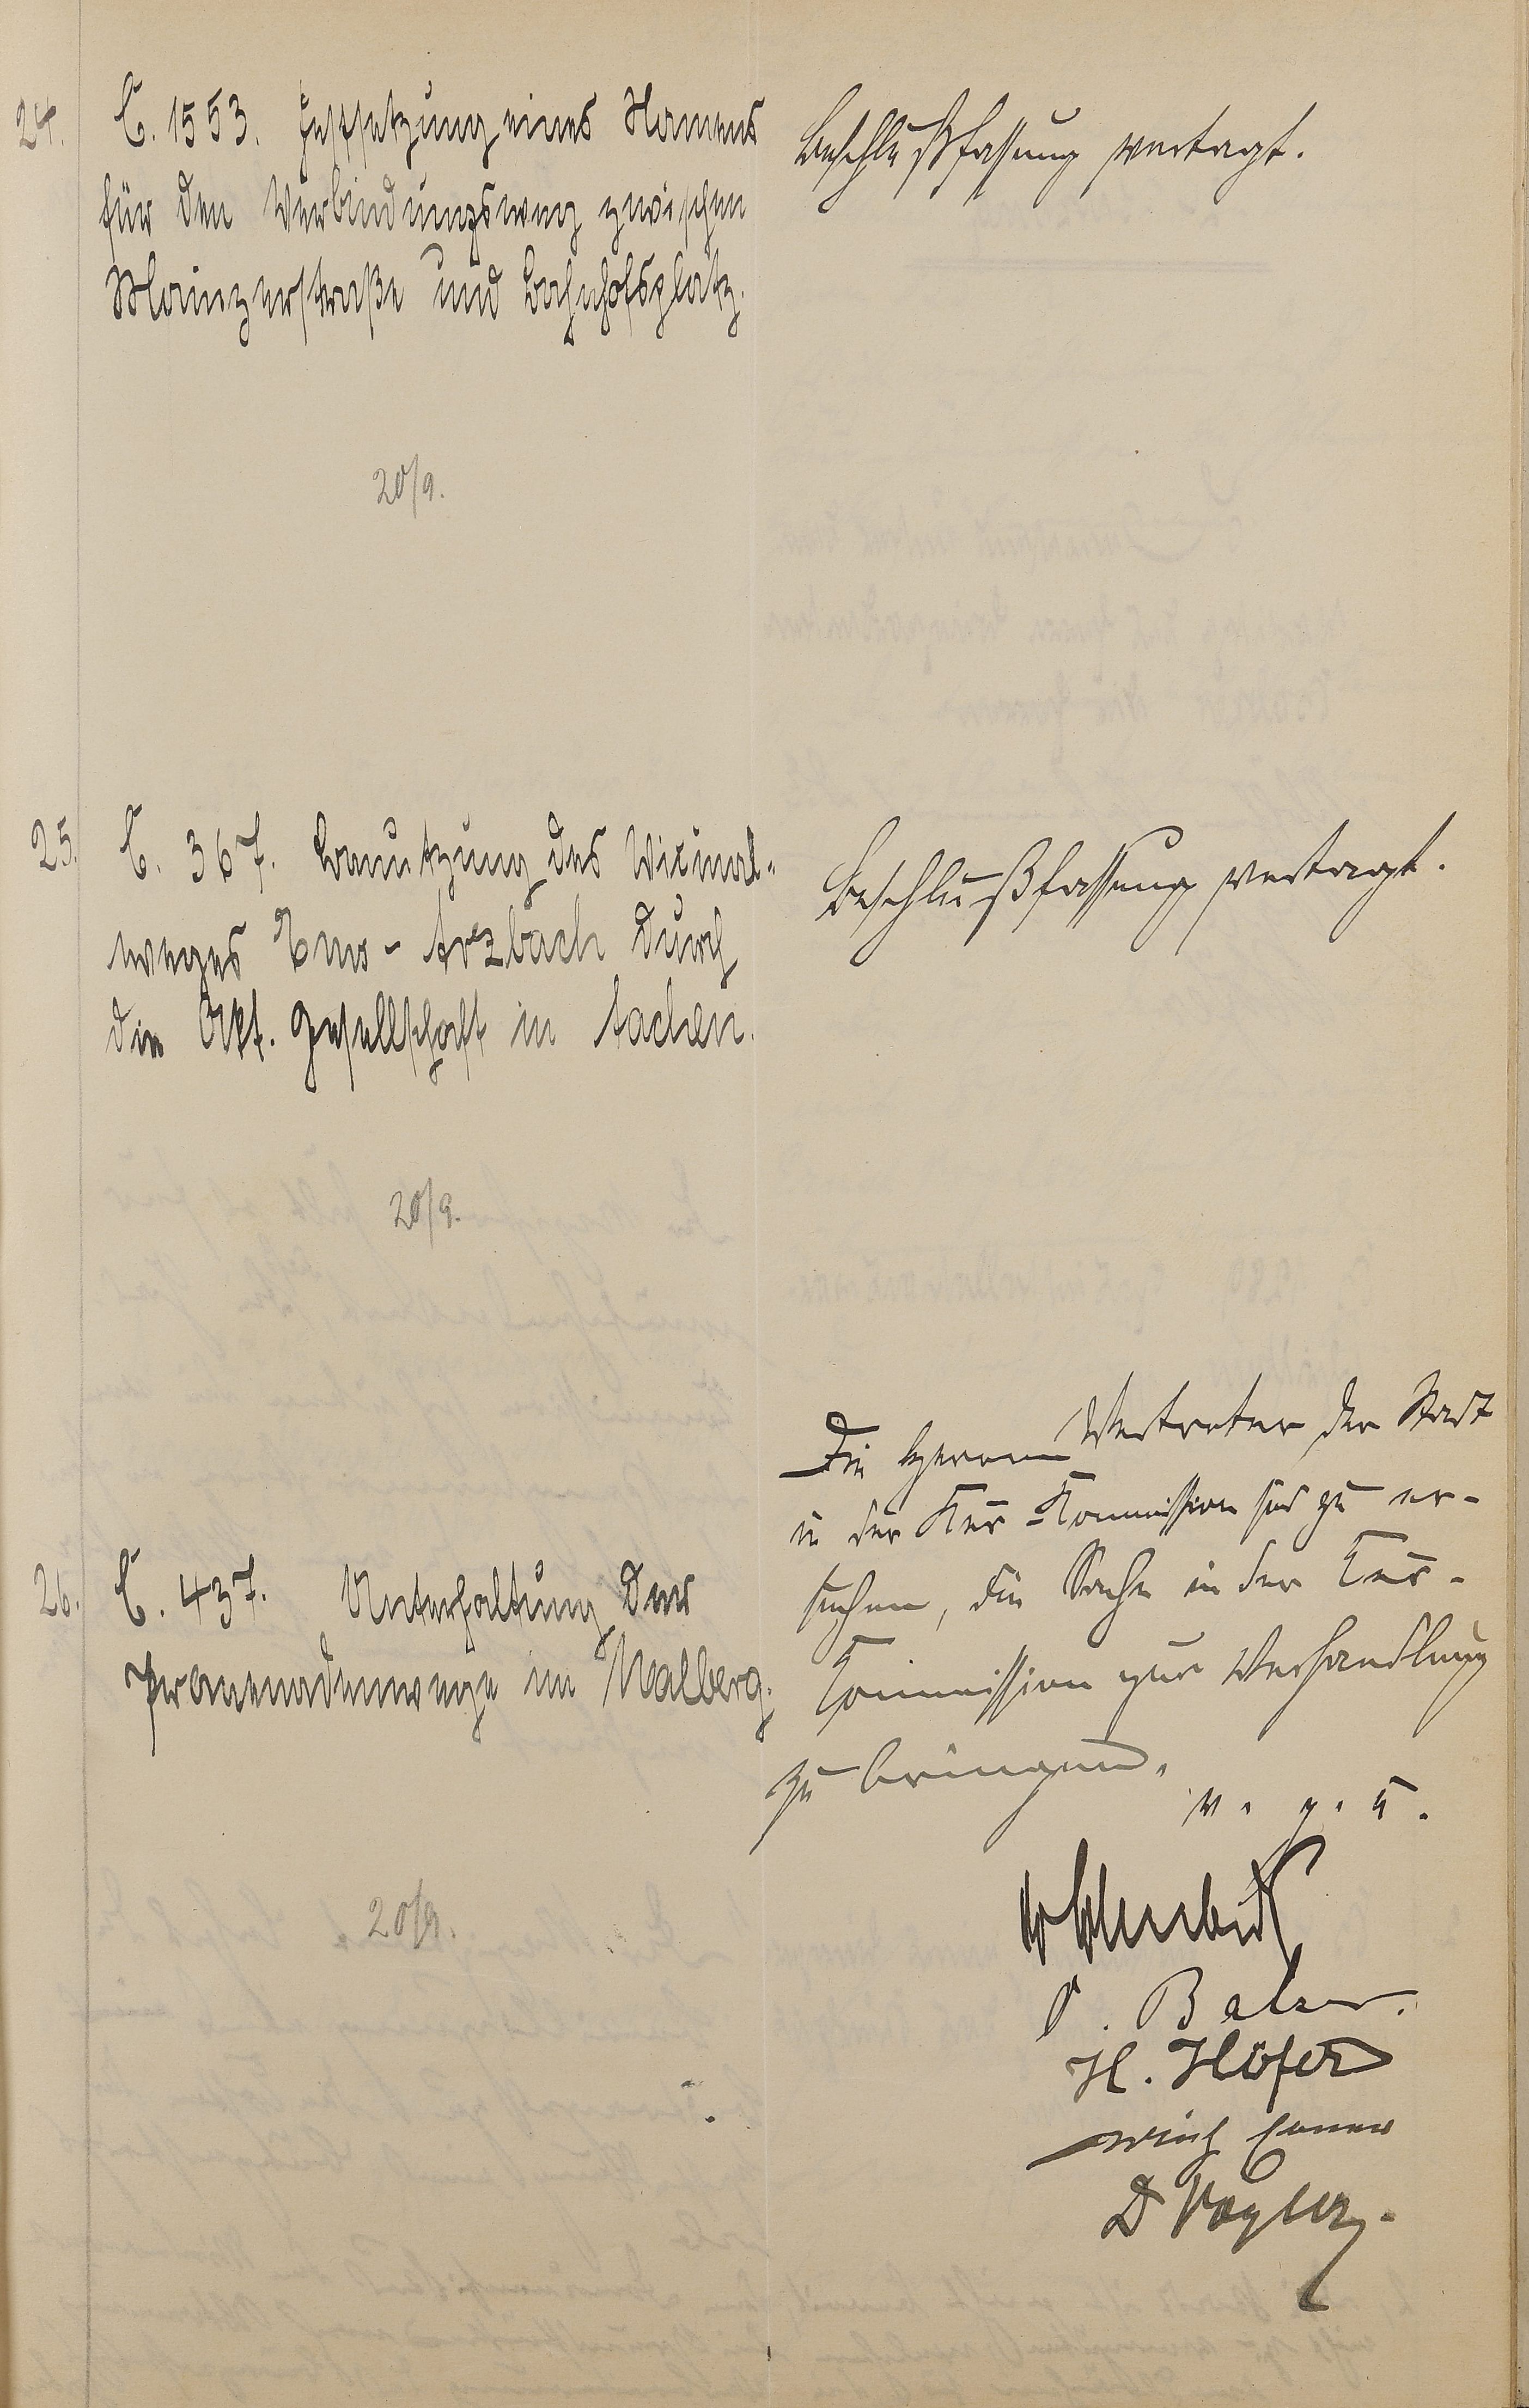 24.
C. 1553. Festsetzung eines Namens
für den Verbindungsweg zwischen
Mainzerstraße und Bahnhofsplatz.
Beschlußfassung vertagt.
20/9.
25.
C. 367. Benutzung des Vicinal-
weges Ems - Arzbach durch
die Akt. Gesellschaft in Aachen.
Beschlußfassung vertagt.
20/9.
26.
C. 437. Unterhaltung der
Promenadenwege im Malberg.
Die Herren Vertreter der Stadt
in der Kur-Kommission sind zu er-
suchen, die Sache in der Kur-
Kommission zur Verhandlung
zu bringen.
v. g. u.
20/9.
Balzer.
H. Höfer
D Vogler.